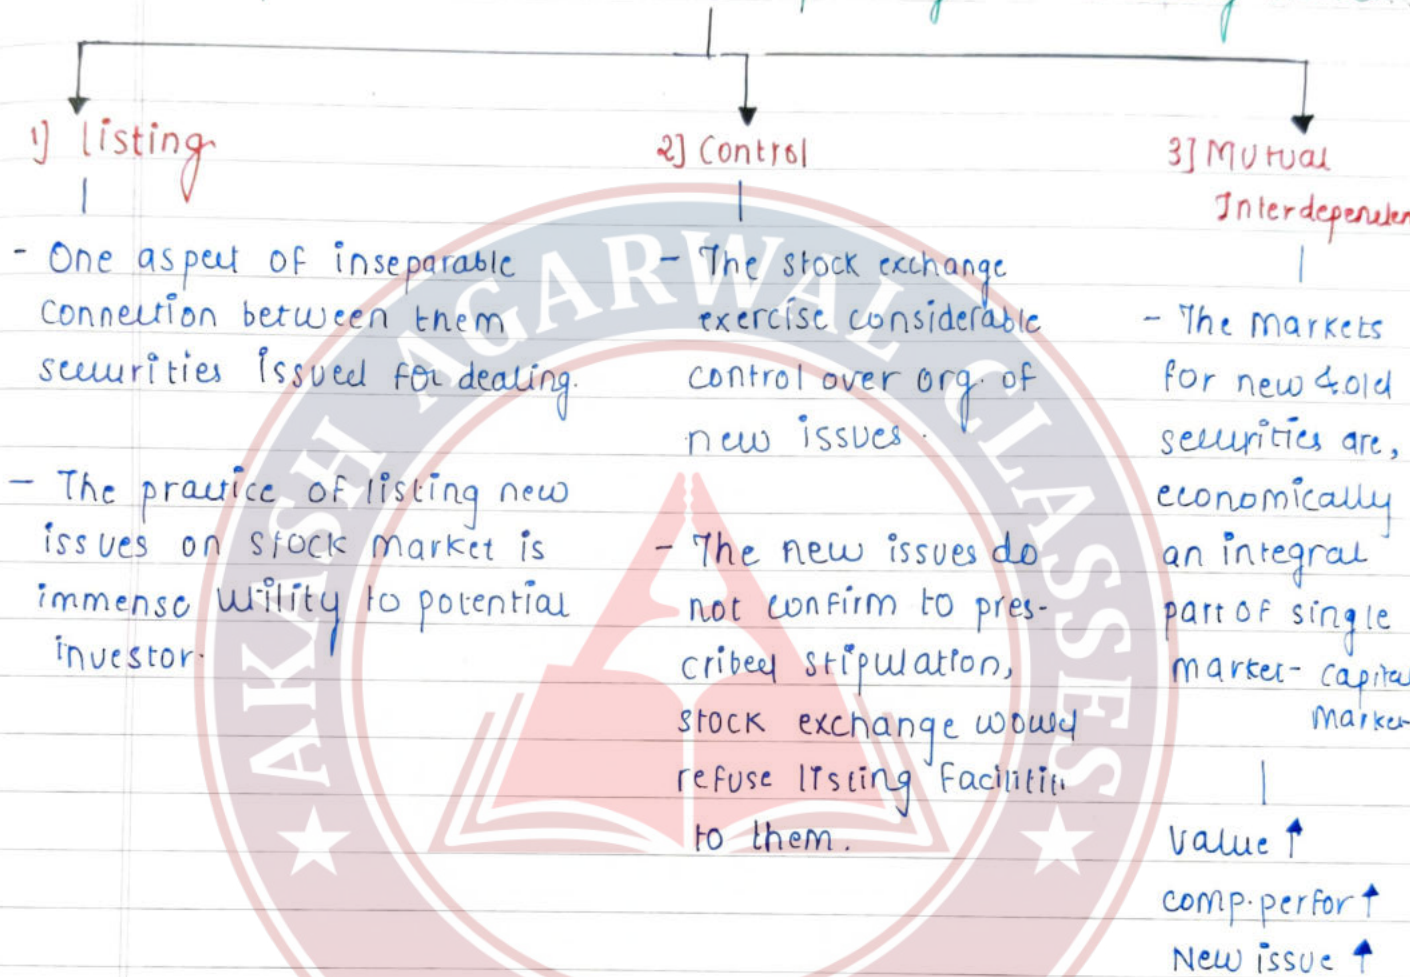 1] listing
- One aspect of inseparable
connection between them
securities issued for dealing.
- The practice of listing new
issues on stock market is
immense utility to potential
investor.
2] Control
- The stock exchange
exercise considerable
control over org. of
new issues.
- The new issues do
not confirm to pres-
cribed stipulation,
stock exchange would
refuse listing
to them.
3] Mutual
- The markets
for new & old
securities are,
economically
an integral
part of single
market- capital
Market
value ↑
comp. perfor ↑
New issue ↑
AKASH AGARWAL CLASSES